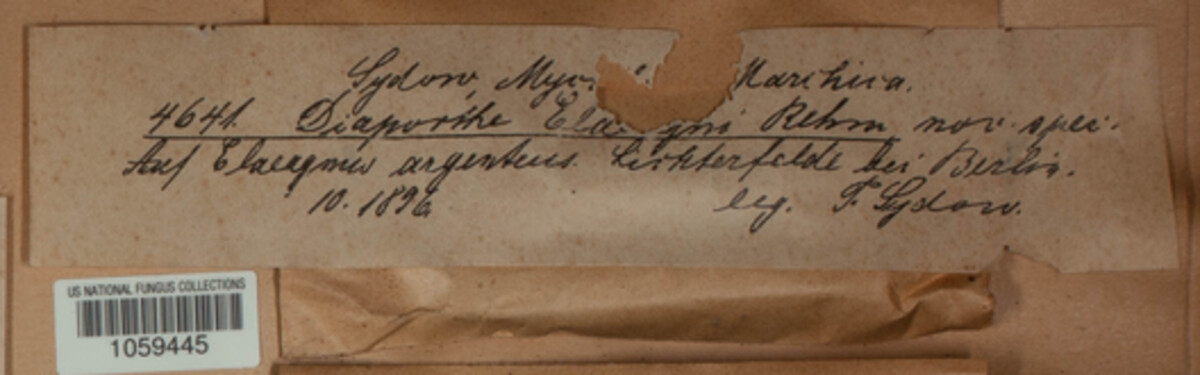 Sydow, Marchica.
4641. Diaporthe Rehm nov. spec.
Auf Elaeagnus argenteus. Lichterfelde bei Berlin.
10. 1896 leg. P. Sydow.
US NATIONAL FUNGUS COLLECTIONS
1059445